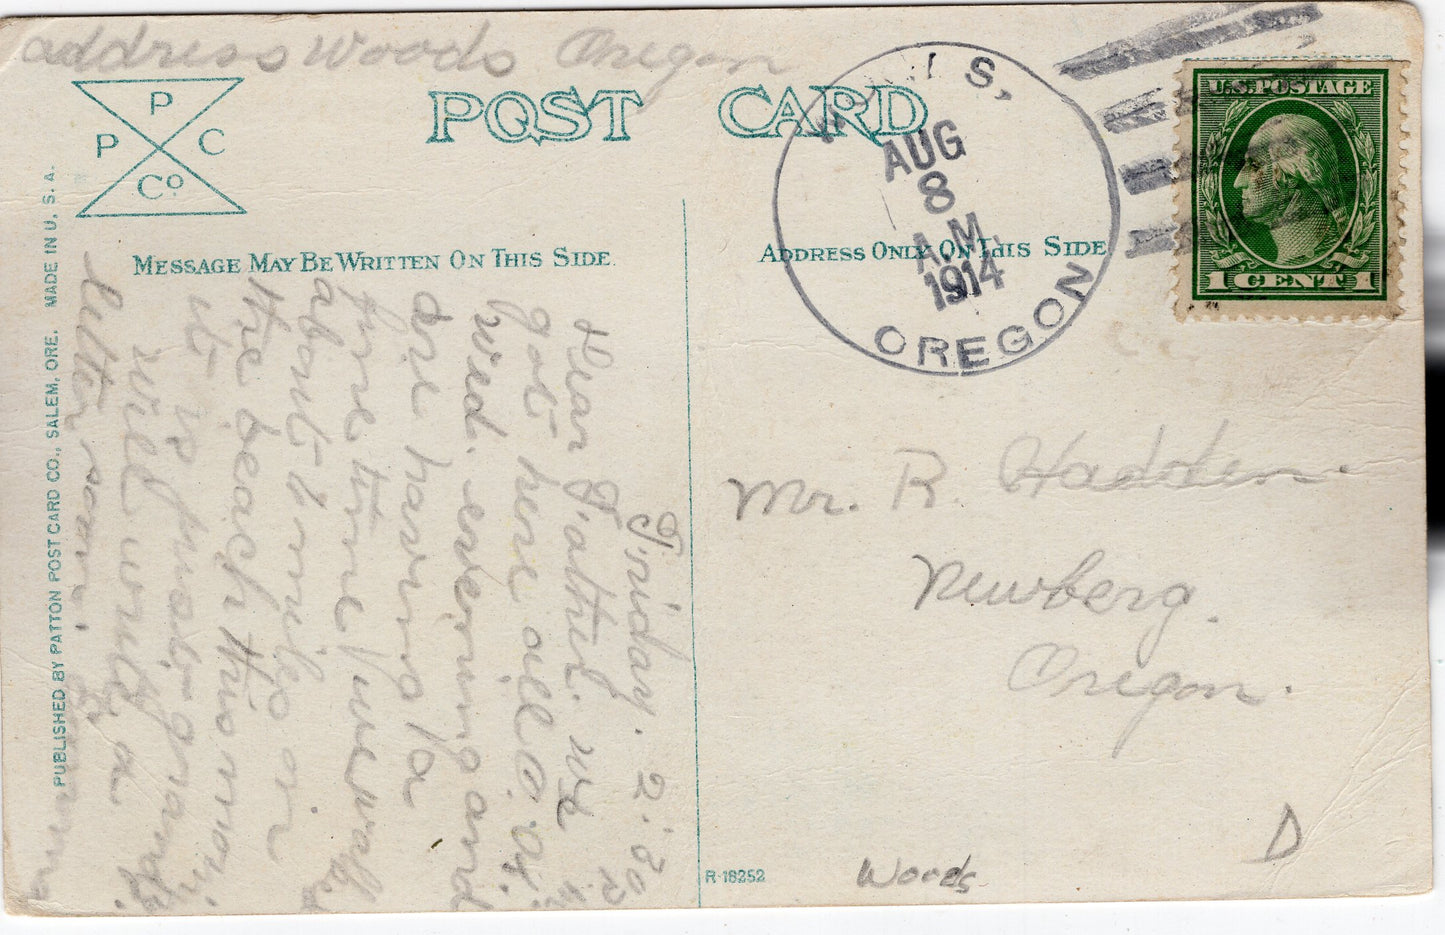 address Woods Oregon
P
P C
Co
POST CARD
MESSAGE MAY BE WRITTEN ON THIS SIDE
ADDRESS ONLY ON THIS SIDE
PUBLISHED BY PATTON POST CARD CO., SALEM, ORE. MADE IN U.S.A.
IS,
AUG
8
A.M.
1914
OREGON
U.S. POSTAGE
1 CENT 1
Friday. 2:30 P.
Dear Father. We
got here all O.K.
Wed. evening and
are having a
fine time/we walk
about 2 miles on
the beach this morn
it is just grand
will write a
letter soon.
Mr. R. Hadden.
Newberg.
Oregon.
R-18252
Woods
D